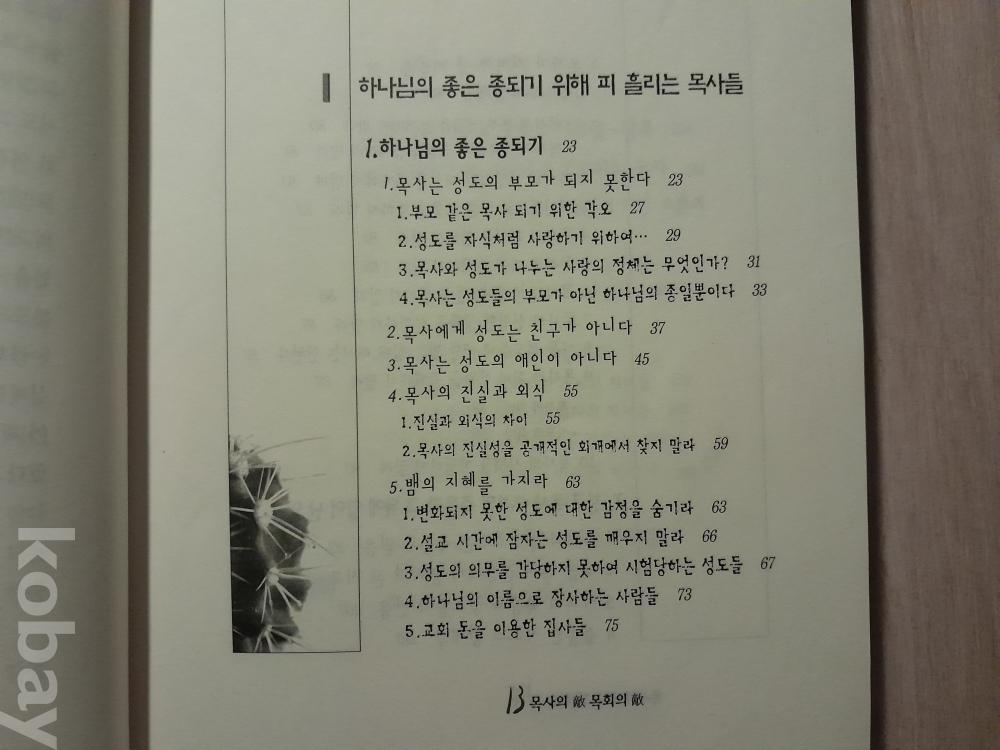 하나님의 좋은 종되기 위해 피 흘리는 목사들
1.하나님의 좋은 종되기 23
1.목사는 성도의 부모가 되지 못한다 23
1.부모 같은 목사 되기 위한 각오 27
2.성도를 자식처럼 사랑하기 위하여… 29
3.목사와 성도가 나누는 사랑의 정체는 무엇인가? 31
4.목사는 성도들의 부모가 아닌 하나님의 종일뿐이다 33
2.목사에게 성도는 친구가 아니다 37
3.목사는 성도의 애인이 아니다 45
4.목사의 진실과 외식 55
1.진실과 외식의 차이 55
2.목사의 진실성을 공개적인 회개에서 찾지 말라 59
5.뱀의 지혜를 가지라 63
1.변화되지 못한 성도에 대한 감정을 숨기라 63
2.설교 시간에 잠자는 성도를 깨우지 말라 66
3.성도의 의무를 감당하지 못하여 시험당하는 성도들 67
4.하나님의 이름으로 장사하는 사람들 73
5.교회 돈을 이용한 집사들 75
13 목사의 敵 목회의 敵
kobay